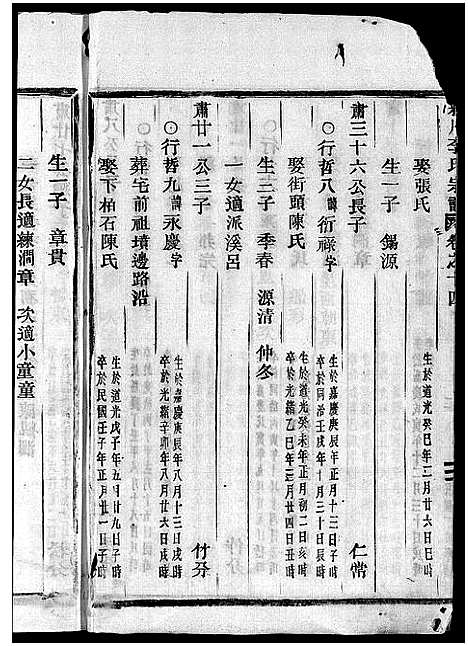 李氏宗譜 卷之十四
娶張氏
生於道光癸巳年二月廿六日巳時
生一子 錫源
肅三十六公長子
仁常
○行哲八諱衍祿字
生於嘉慶庚辰年正月十三日子時
卒於同治壬戌年十月三十日辰時
娶街頭陳氏
生於道光癸未年正月初二日亥時
卒於光緒乙巳年三月廿四日丑時
生三子 季春 源清 仲冬
一女適派溪呂
肅廿一公三子
竹芬
○行哲九諱永慶字
生於嘉慶庚辰年八月十三日戌時
卒於光緒辛卯年八月廿六日戌時
葬宅前祖墳邊路沿
娶下柏石陳氏
生於道光戊子年五月廿九日子時
卒於民國壬子年正月廿一日子時
生一子 章貴
二女長適練澗章 次適小童童